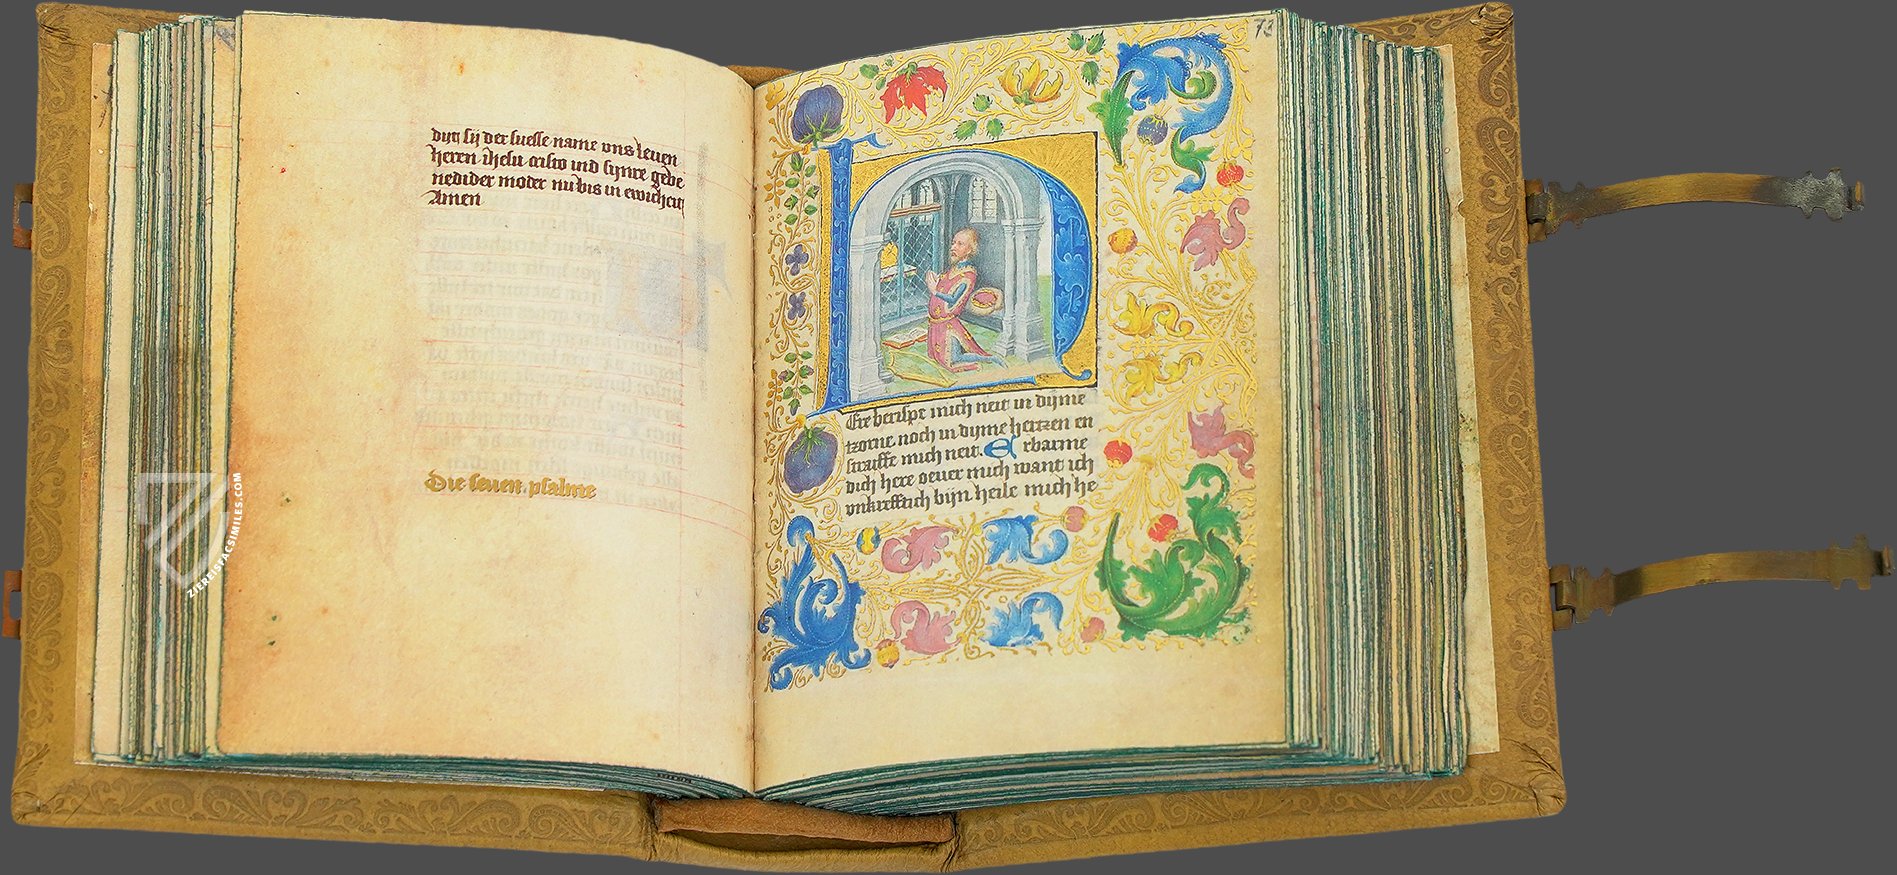 dyn sy der suesse name uns leuen
heren ihesu cristo ind synre gebe
nedider moder nu bis in ewicheit
Amen
Die seuen psalme
73
HEre berispe mich neit in dyme
tzorne noch in dyme hertzen en
straiffe mich neit. Erbarme
dich here oeuer mich want ich
unkreftich byn heile mich he
ZIEREISFACSIMILES.COM